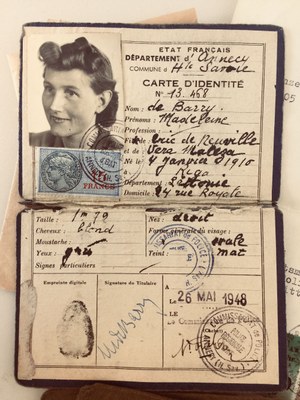 ETAT FRANÇAIS
DÉPARTEMENT d'Annecy
COMMUNE d' Hte Savoie
CARTE D'IDENTITÉ
N° 13.468
Nom : de Barry
Prénoms : Madeleine
Profession :
Fille Eric de Neuville
et Vera
Né le 4 janvier 1910
Riga
Département : Lettonie
Domicile : 24 rue Royale
FRANCS
Taille : 1m 79
Nez : droit
Cheveux : blond
Forme générale du visage :
Moustache :
ovale
Yeux : gris
Teint : mat
Signes particuliers
Empreinte digitale
Signature du Titulaire
MdeBarry
A
LE 26 MAI 1948
Le Com